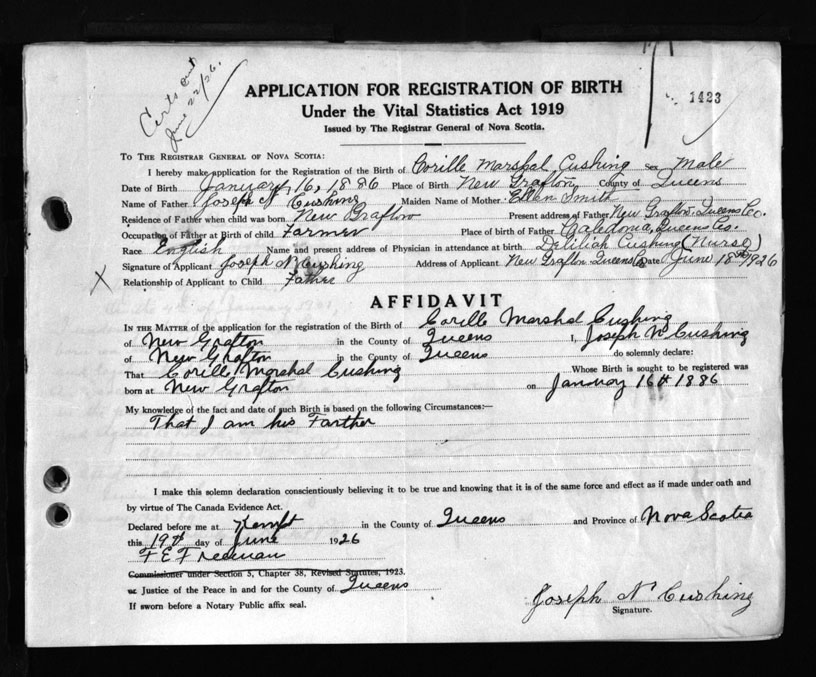 Cert sent
June 22/26.
1423
APPLICATION FOR REGISTRATION OF BIRTH
Under the Vital Statistics Act 1919
Issued by The Registrar General of Nova Scotia.
TO THE REGISTRAR GENERAL OF NOVA SCOTIA:
I hereby make application for the Registration of the Birth of Corille Marshal Cushing Sex Male
Date of Birth January 16, 1886 Place of Birth New Grafton County of Queens
Name of Father Joseph N Cushing Maiden Name of Mother Ellen Smith
Residence of Father when child was born New Grafton Present address of Father New Grafton, Queens Co.
Occupation of Father at Birth of child Farmer Place of birth of Father Caledonia, Queens Co.
Race English Name and present address of Physician in attendance at birth Deliliah Cushing (Nurse)
Signature of Applicant Joseph N Cushing Address of Applicant New Grafton Queens Co Date June 18th 1926
X Relationship of Applicant to Child Father
AFFIDAVIT
IN THE MATTER of the application for the registration of the Birth of Corille Marshal Cushing
of New Grafton in the County of Queens I, Joseph N Cushing
of New Grafton in the County of Queens do solemnly declare:
That Corille Marshal Cushing Whose Birth is sought to be registered was
born at New Grafton on January 16th 1886
My knowledge of the fact and date of such Birth is based on the following Circumstances:—
That I am his Farther
I make this solemn declaration conscientiously believing it to be true and knowing that it is of the same force and effect as if made under oath and
by virtue of The Canada Evidence Act.
Declared before me at Kempt in the County of Queens and Province of Nova Scotia
this 19th day of June 1926
F E Freeman
Commissioner under Section 5, Chapter 38, Revised Statutes, 1923.
or Justice of the Peace in and for the County of Queens
If sworn before a Notary Public affix seal.
Joseph N Cushing
Signature.